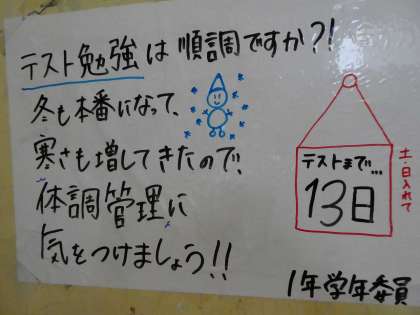 テスト勉強は順調ですか?!
冬も本番になって、
寒さも増してきたので、
体調管理に
気をつけましょう!!
テストまで...
13日
土・日入れて
1年学年委員